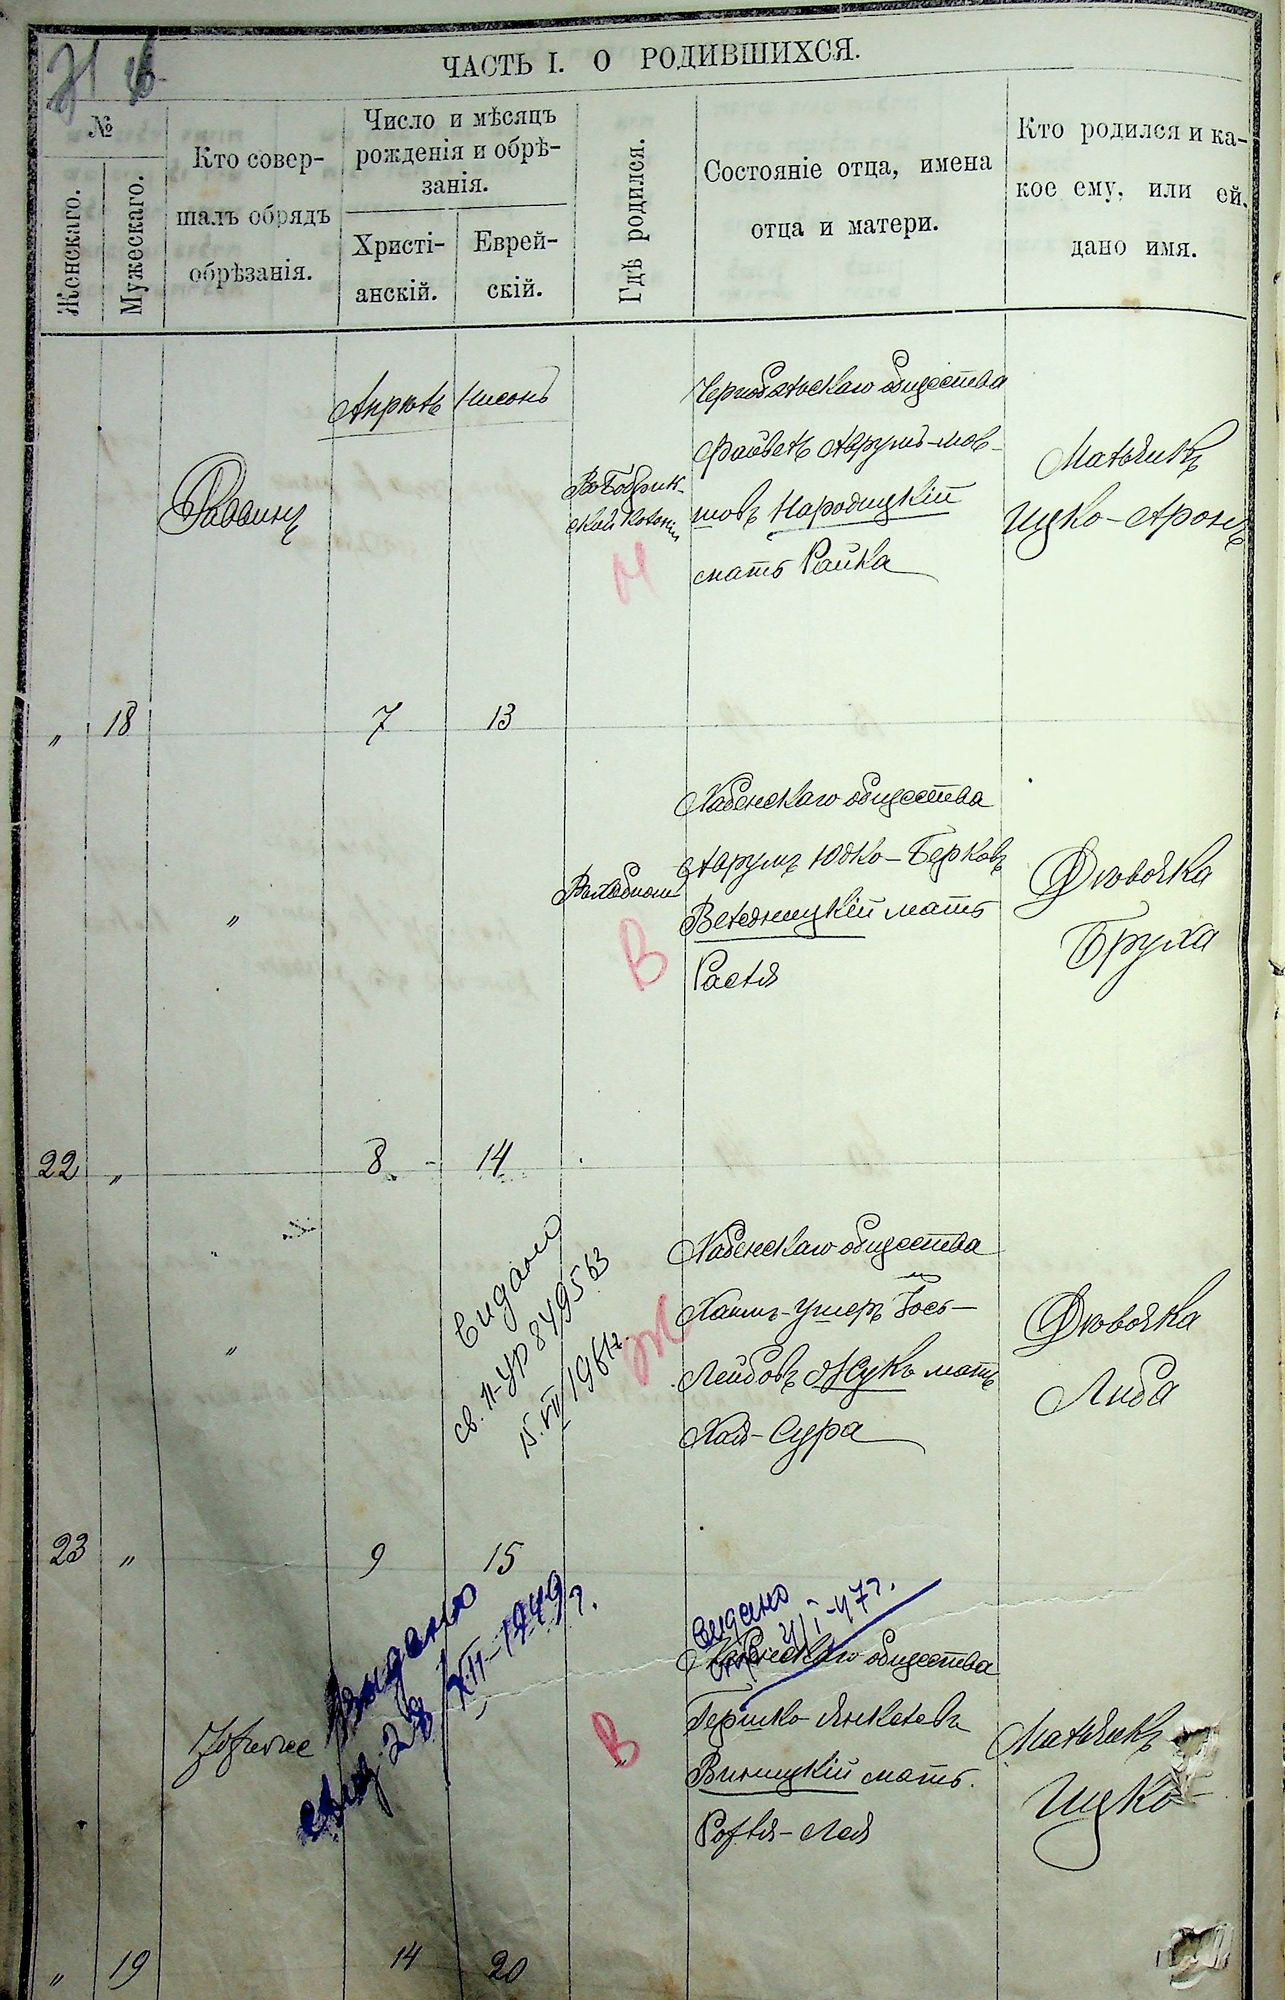 ЧАСТЬ I. О РОДИВШИХСЯ.
№
Женскаго.
Мужескаго.
Кто совер-
шалъ обрядъ
обрѣзанія.
Число и мѣсяцъ
рожденія и обрѣ-
занія.
Христі-
анскій.
Еврей-
скій.
Гдѣ родился.
Состояніе отца, имена
отца и матери.
Кто родился и ка-
кое ему, или ей,
дано имя.
Апрѣль Нисонъ
Раввинъ
Въ Бобрин-
ской Колоніи
Н
Чернобыльскаго общества
Файвель Аврумъ-Мов-
шовъ Народицкій
мать Райка
Мальчикъ
Ицко-Аронъ
" 18 7 13
"
В
Хабенскаго общества
Аврумъ Юдко-Берковъ
Веледницкій мать
Расля
Дѣвочка
Бруха
22 " 8 14
"
видано
св. II-УР 849563
15.VII 1961г.
Ж
Хабенскаго общества
Хаимъ-Ушеръ Іось-
Лейбовъ Жукъ мать
Хая-Сура
Дѣвочка
Либа
23 " 9 15
видано
28/XII-1949г.
В
видано
4/I-47г.
Хабенскаго общества
Гершко Янкелевъ
Виницкій мать
Рохля-Лея
Мальчикъ
Ицко-
" 19 14 20